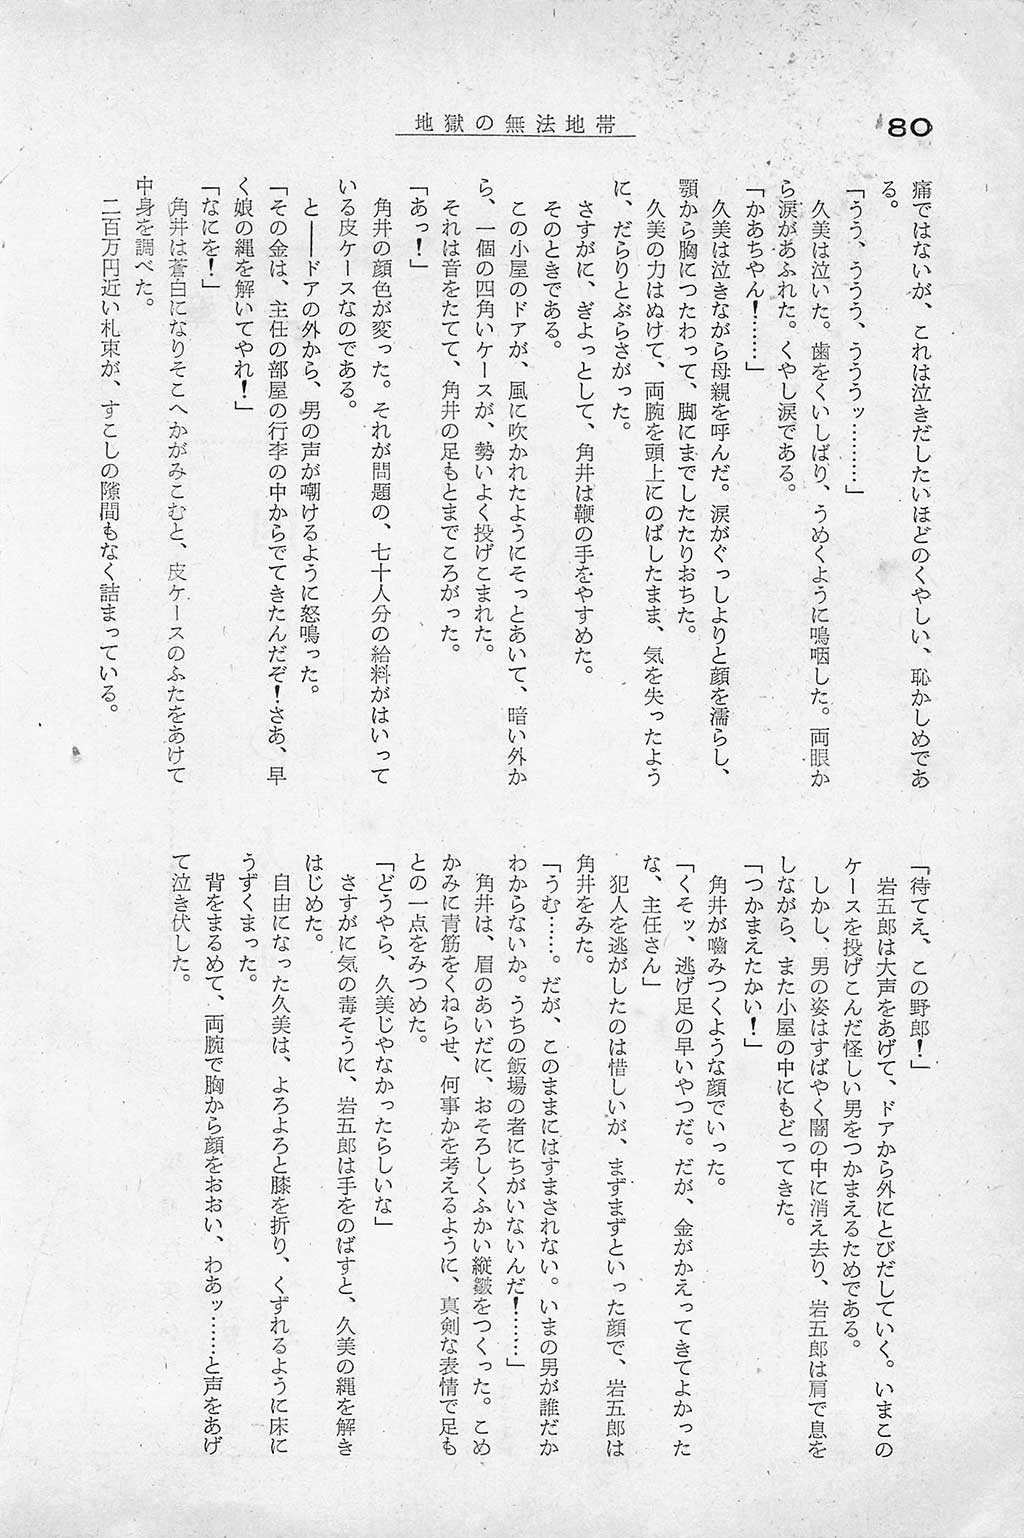 地獄の無法地帯
80
痛ではないが、これは泣きだしたいほどのくやしい、恥かしめであ
る。
「うう、ううう、うううッ………」
久美は泣いた。歯をくいしばり、うめくように嗚咽した。両眼か
ら涙があふれた。くやし涙である。
「かあちゃん！……」
久美は泣きながら母親を呼んだ。涙がぐっしよりと顔を濡らし、
顎から胸につたわって、脚にまでしたたりおちた。
久美の力はぬけて、両腕を頭上にのばしたまま、気を失ったよう
に、だらりとぶらさがった。
さすがに、ぎよっとして、角井は鞭の手をやすめた。
そのときである。
この小屋のドアが、風に吹かれたようにそっとあいて、暗い外か
ら、一個の四角いケースが、勢いよく投げこまれた。
それは音をたてて、角井の足もとまでころがった。
「あっ！」
角井の顔色が変った。それが問題の、七十人分の給料がはいって
いる皮ケースなのである。
と――ドアの外から、男の声が嘲けるように怒鳴った。
「その金は、主任の部屋の行李の中からでてきたんだぞ！さあ、早
く娘の縄を解いてやれ！」
「なにを！」
角井は蒼白になりそこへかがみこむと、皮ケースのふたをあけて
中身を調べた。
二百万円近い札束が、すこしの隙間もなく詰まっている。
「待てえ、この野郎！」
岩五郎は大声をあげて、ドアから外にとびだしていく。いまこの
ケースを投げこんだ怪しい男をつかまえるためである。
しかし、男の姿はすばやく闇の中に消え去り、岩五郎は肩で息を
しながら、また小屋の中にもどってきた。
「つかまえたかい！」
角井が噛みつくような顔でいった。
「くそッ、逃げ足の早いやつだ。だが、金がかえってきてよかった
な、主任さん」
犯人を逃がしたのは惜しいが、まずまずといった顔で、岩五郎は
角井をみた。
「うむ……。だが、このままにはすまされない。いまの男が誰だか
わからないか。うちの飯場の者にちがいないんだ！……」
角井は、眉のあいだに、おそろしくふかい縦皺をつくった。こめ
かみに青筋をくねらせ、何事かを考えるように、真剣な表情で足も
との一点をみつめた。
「どうやら、久美じやなかったらしいな」
さすがに気の毒そうに、岩五郎は手をのばすと、久美の縄を解き
はじめた。
自由になった久美は、よろよろと膝を折り、くずれるように床に
うずくまった。
背をまるめて、両腕で胸から顔をおおい、わあッ……と声をあげ
て泣き伏した。